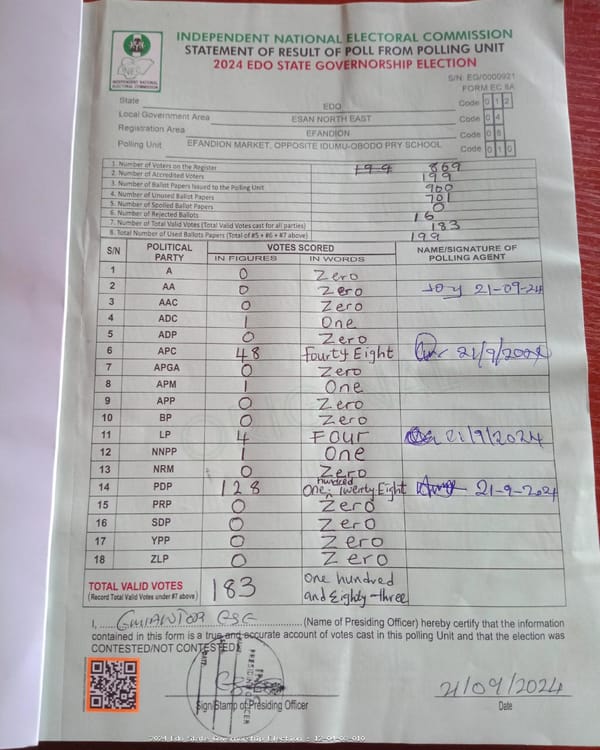 INDEPENDENT NATIONAL ELECTORAL COMMISSION
STATEMENT OF RESULT OF POLL FROM POLLING UNIT
2024 EDO STATE GOVERNORSHIP ELECTION
INDEPENDENT NATIONAL
ELECTORAL COMMISSION
S/N: EG/0000921
FORM EC 8A
State EDO Code 0 1 2
Local Government Area ESAN NORTH EAST Code 0 4
Registration Area EFANDION Code 0 8
Polling Unit EFANDION MARKET, OPPOSITE IDUMU-OBODO PRY SCHOOL Code 0 1 0
1. Number of Voters on the Register 199 869
2. Number of Accredited Voters 199
3. Number of Ballot Papers Issued to the Polling Unit 900
4. Number of Unused Ballot Papers 701
5. Number of Spoiled Ballot Papers 0
6. Number of Rejected Ballots 16
7. Number of Total Valid Votes (Total Valid Votes cast for all parties) 183
8. Total Number of Used Ballots Papers (Total of #5 + #6 + #7 above) 199
S/N POLITICAL PARTY VOTES SCORED NAME/SIGNATURE OF POLLING AGENT
IN FIGURES IN WORDS
1 A 0 Zero
2 AA 0 Zero 21-09-24
3 AAC 0 Zero
4 ADC 1 One
5 ADP 0 Zero
6 APC 48 Fourty Eight 21/9/2024
7 APGA 0 Zero
8 APM 1 One
9 APP 0 Zero
10 BP 0 Zero
11 LP 4 Four 21/9/2024
12 NNPP 1 One
13 NRM 0 Zero
14 PDP 128 One hundred Twenty-Eight 21-9-2024
15 PRP 0 Zero
16 SDP 0 Zero
17 YPP 0 Zero
18 ZLP 0 Zero
TOTAL VALID VOTES 183 One hundred
(Record Total Valid Votes under #7 above) and Eighty-three
I, (Name of Presiding Officer) hereby certify that the information
contained in this form is a true and accurate account of votes cast in this polling Unit and that the election was
CONTESTED/NOT CONTESTED
Sign/Stamp of Presiding Officer
21/09/2024
Date
2024 Edo State Governorship Election : 12-04-08-010